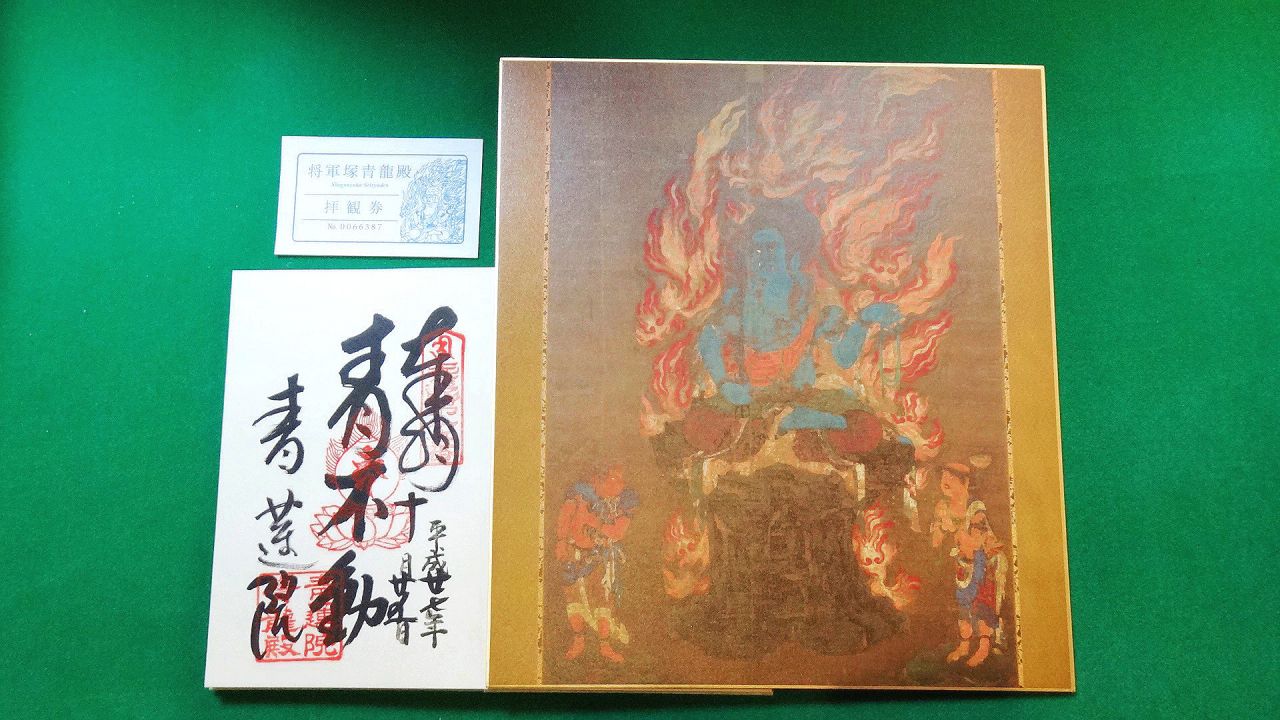 将軍塚青龍殿
Shogunzuka Seiryuden
拝観券
No. 0066387
平成廿七年
青不動
青蓮院
青蓮院
青龍殿